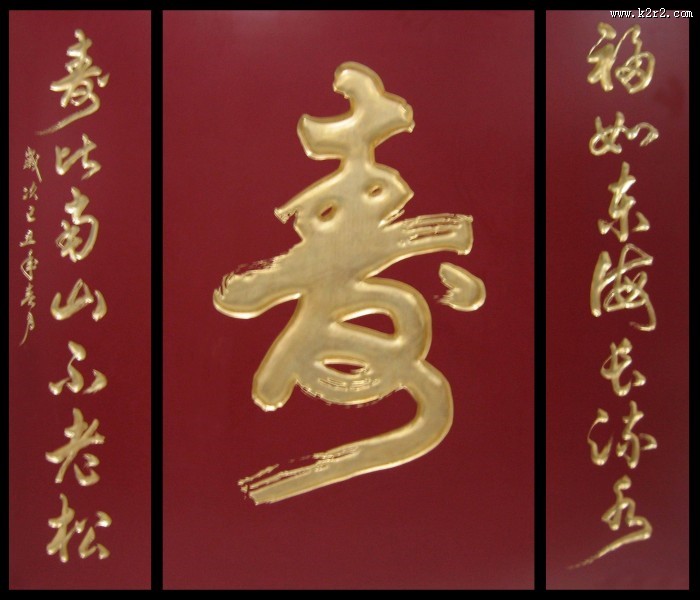 www.k2r2.com
福如东海长流水
寿
寿比南山不老松
岁次己丑年春月